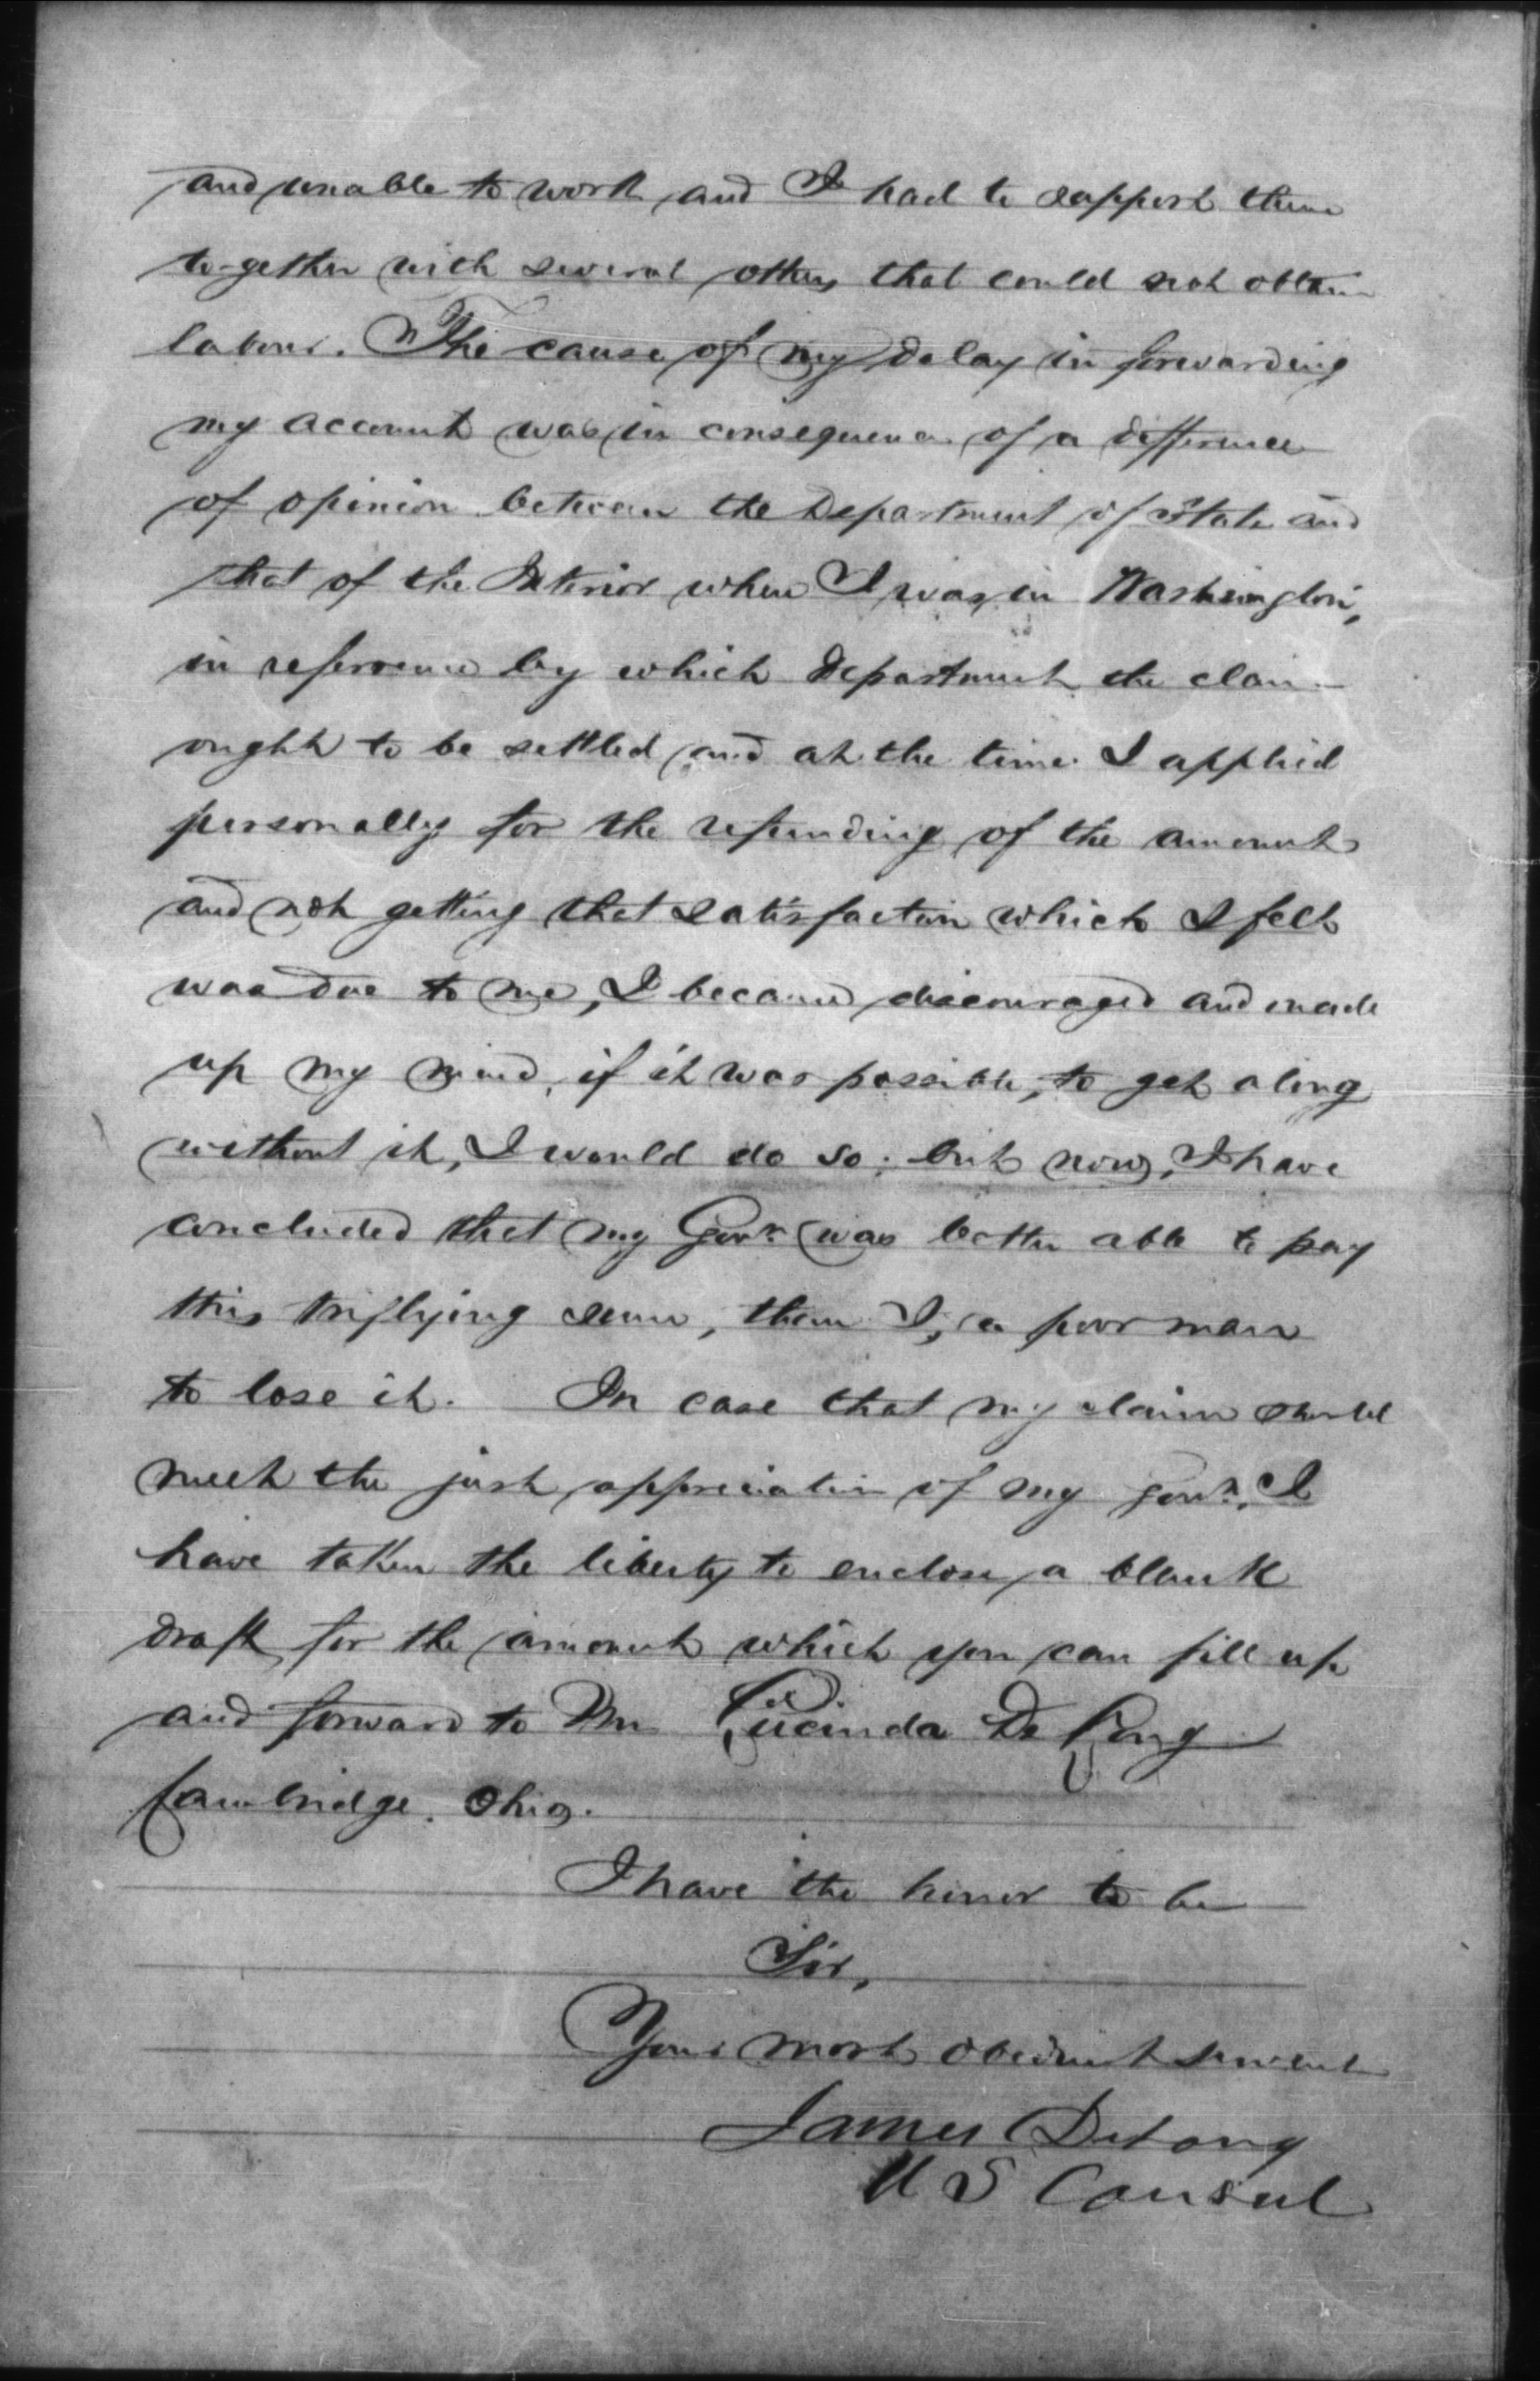 and unable to work and I had to support them
to-gether with several others that could not obtain
labour. The cause of my delay in forwarding
my account was in consequence of a difference
of opinion between the Department of State and
that of the Interior when I was in Washington,
in reference by which department the claim
ought to be settled and at the time I applied
personally for the refunding of the amount
and not getting that satisfaction which I felt
was due to me, I became discouraged and made
up my mind, if it was possible, to get along
without it, I would do so; but now, I have
concluded that my Govt. was better able to pay
this triflying sum, than I, a poor man
to lose it. In case that my claim should
meet the just appreciation of my govt., I
have taken the liberty to enclose a blank
draft for the amount which you can fill up
and forward to Mrs Lucinda De Long
Cambridge. Ohio.
I have the honor to be
Sir,
Your most obedient servant
James DeLong
U S Consul